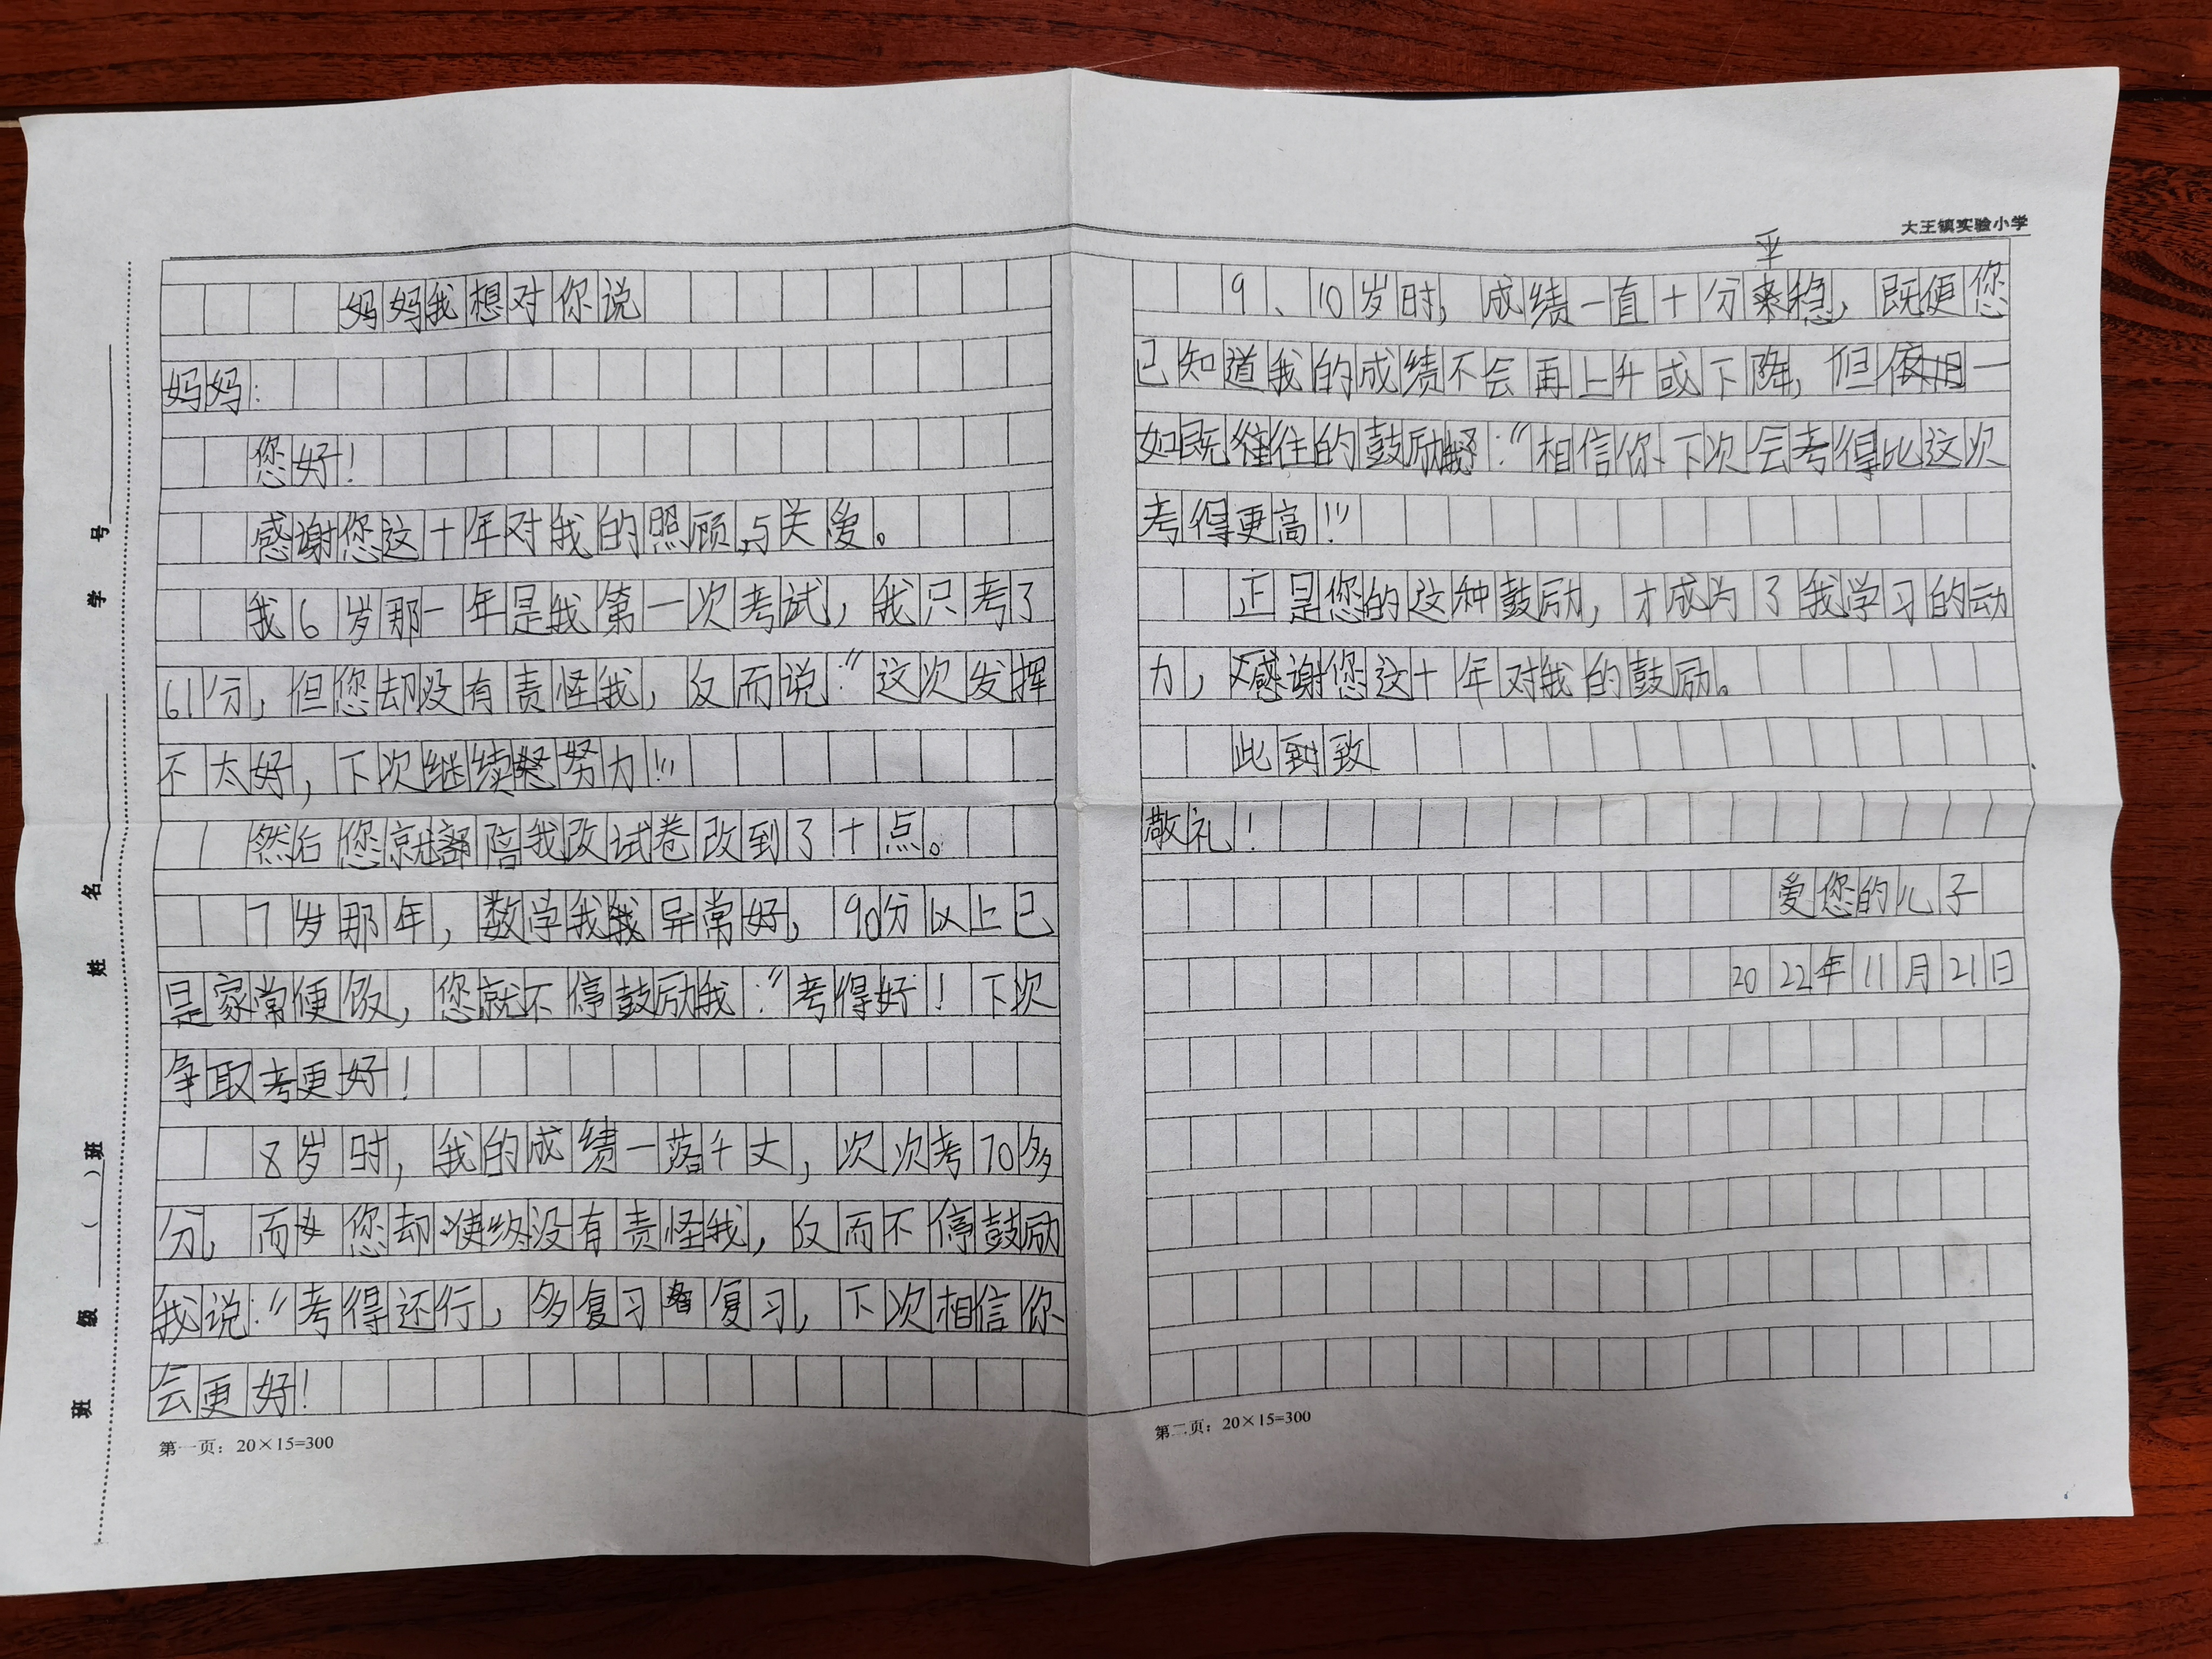 大王镇实验小学
妈妈我想对你说
妈妈:
您好!
感谢您这十年对我的照顾与关爱。
我6岁那一年是我第一次考试,我只考了
61分,但您却没有责怪我,反而说:"这次发挥
不太好,下次继续努力!"
然后您就陪我改试卷改到了十点。
7岁那年,数学我异常好,90分以上已
是家常便饭,您就不停鼓励我:"考得好!下次
争取考更好!
8岁时,我的成绩一落千丈,次次考70多
分,而您却使终没有责怪我,反而不停鼓励
我说:"考得还行,多复习复习,下次相信你
会更好!
第一页:20×15=300
9、10岁时,成绩一直十分平稳,既便您
已知道我的成绩不会再上升或下降,但依旧一
如既往的鼓励我:"相信你下次会考得比这次
考得更高!"
正是您的这种鼓励,才成为了我学习的动
力,感谢您这十年对我的鼓励。
此致
敬礼!
爱您的儿子
2022年11月21日
第二页:20×15=300
班 级 ( )班 姓 名 学 号